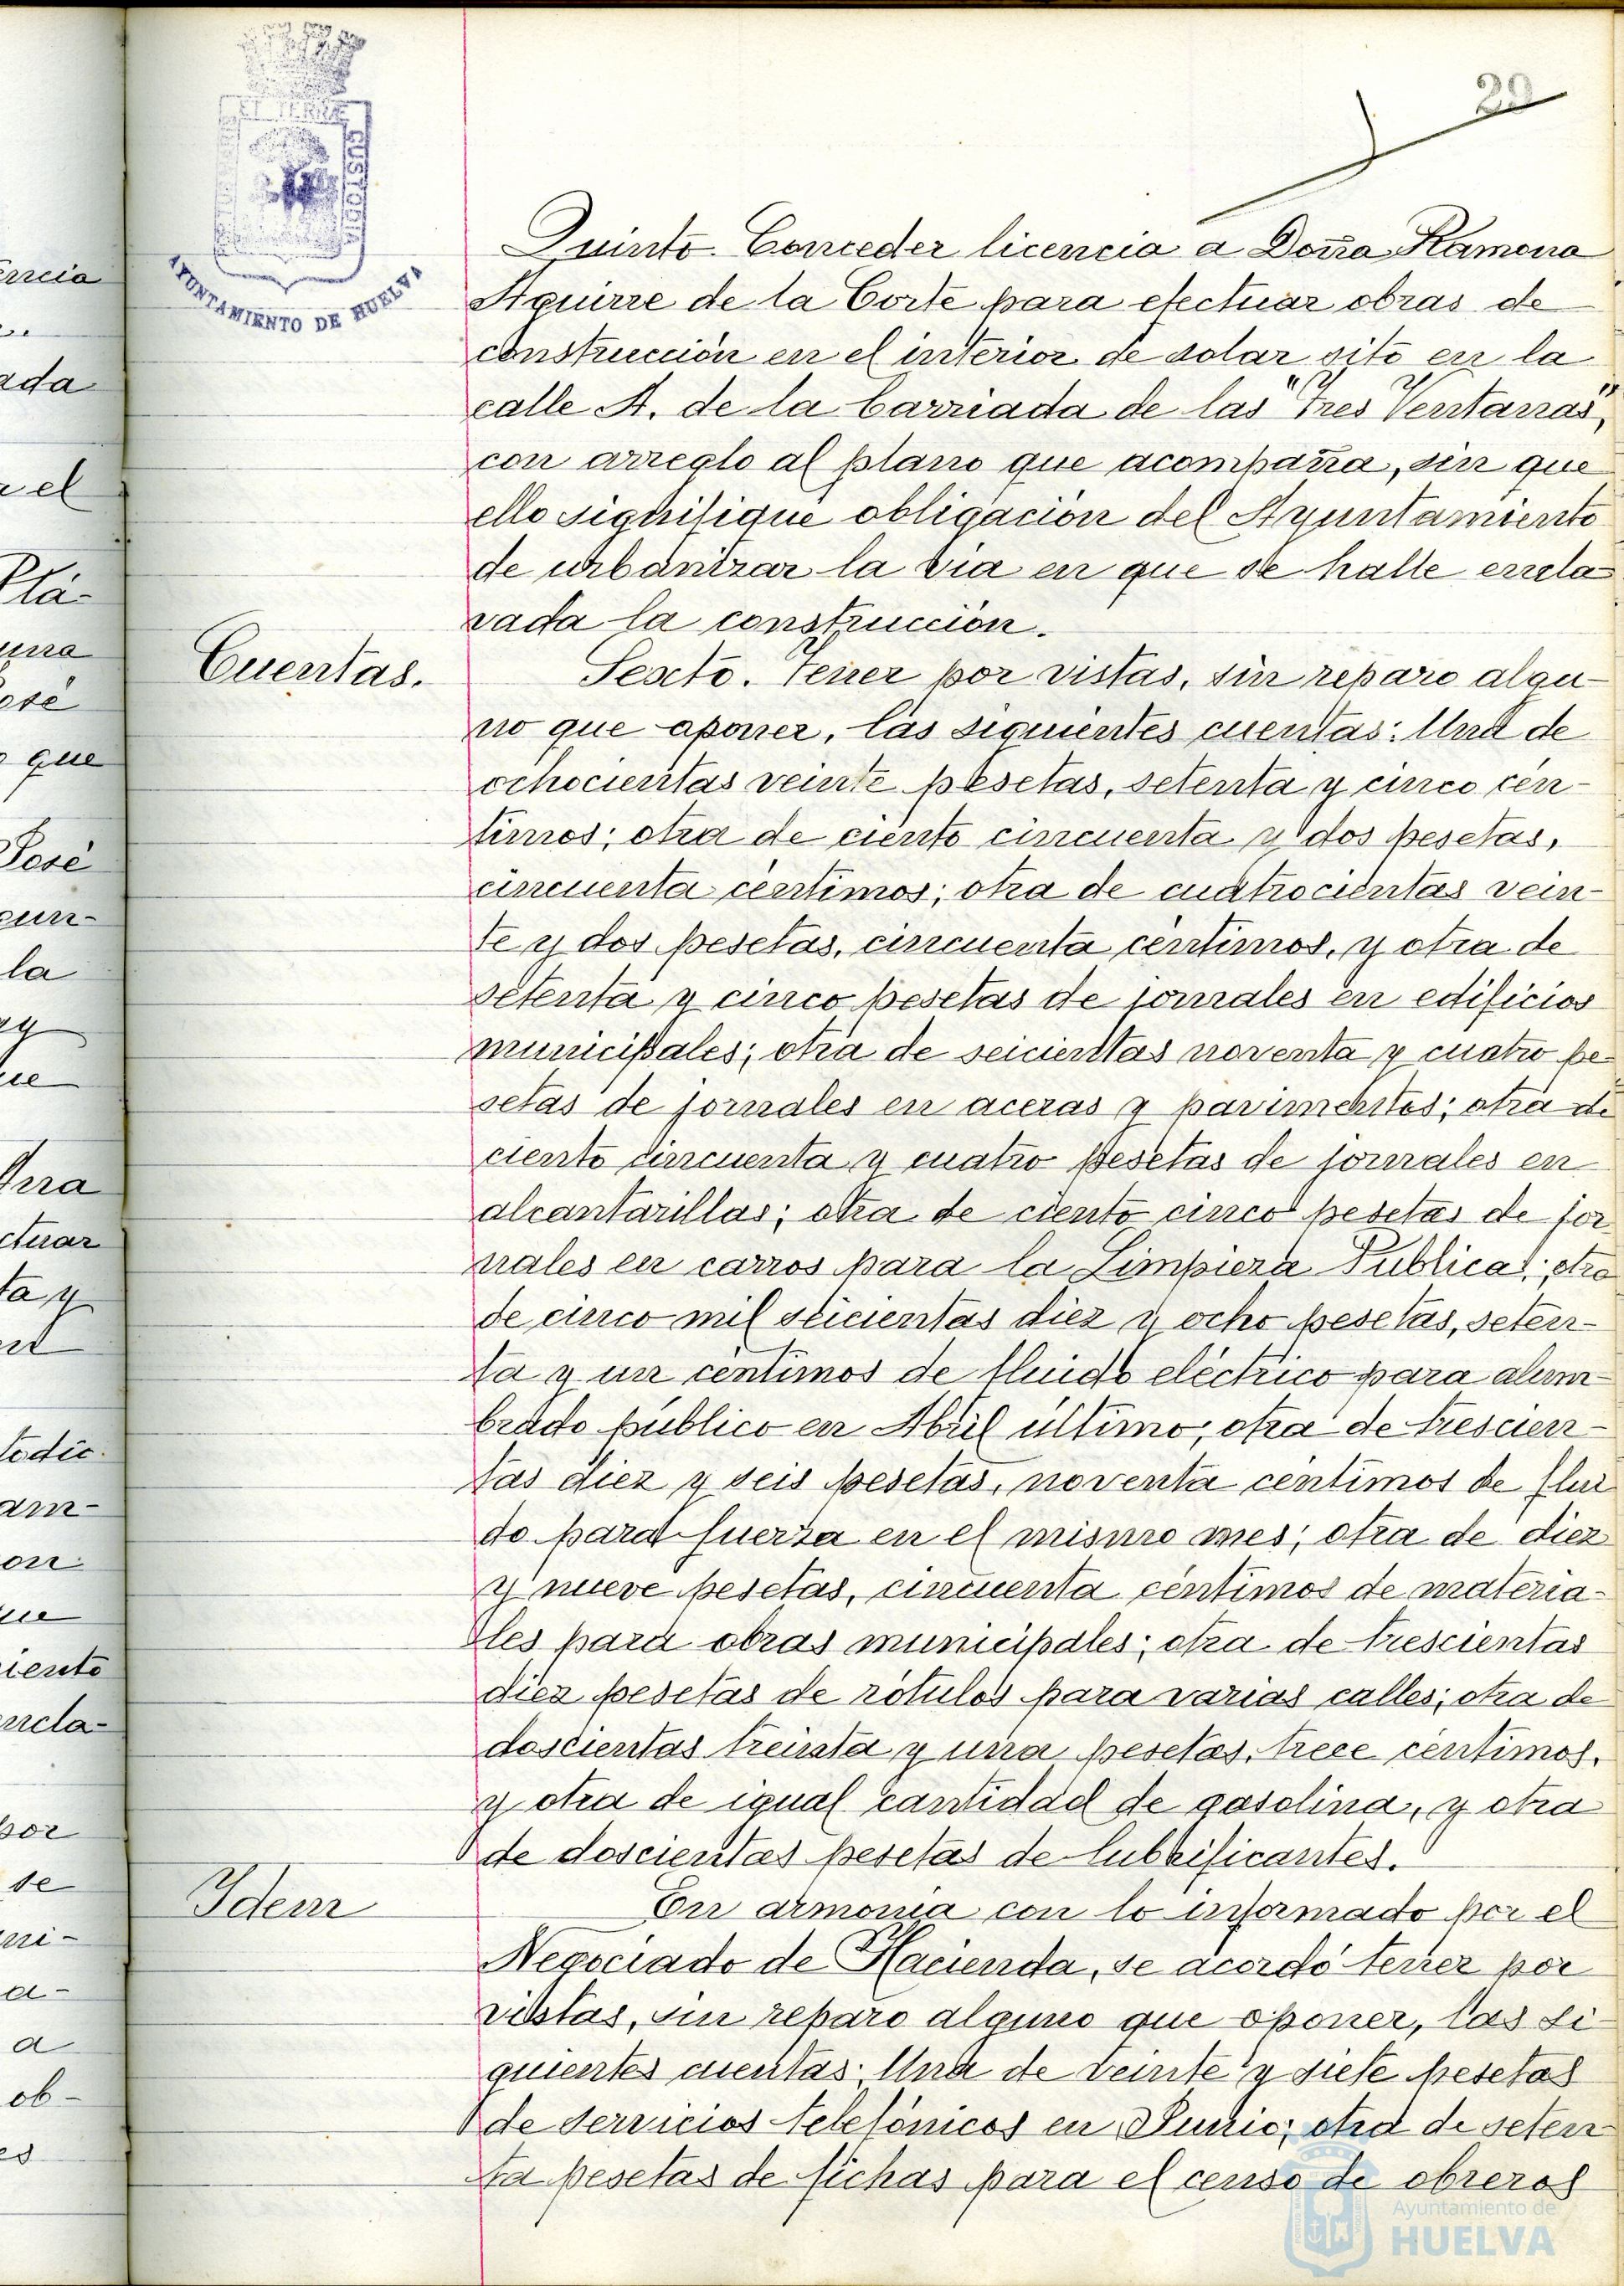 29
PORTUS MARIS ET TERRAE CUSTODIA
AYUNTAMIENTO DE HUELVA
Quinto. Conceder licencia a Doña Ramona
Aguirre de la Corte para efectuar obras de
construcción en el interior de solar sito en la
calle A. de la barriada de las "Tres Ventanas",
con arreglo al plano que acompaña, sin que
ello signifique obligación del Ayuntamiento
de urbanizar la via en que se halle encla
vada la construcción.
Cuentas.
Sexto. Tener por vistas, sin reparo algu-
no que aponer, las siguientes cuentas: Una de
ochocientas veinte pesetas, setenta y cinco cén-
timos; otra de ciento cincuenta y dos pesetas,
cincuenta céntimos; otra de cuatrocientas vein-
te y dos pesetas, cincuenta céntimos, y otra de
setenta y cinco pesetas de jornales en edificios
municipales; otra de seicientas noventa y cuatro pe
setas de jornales en aceras y pavimentos; otra de
ciento cincuenta y cuatro pesetas de jornales en
alcantarillas; otra de ciento cinco pesetas de jor
nales en carros para la Limpieza Publica; otra
de cinco mil seicientas diez y ocho pesetas, seten-
ta y un centimos de fluido eléctrico para alum-
brado público en Abril último; otra de trescien-
tas diez y seis pesetas, noventa centimos de flui
do para fuerza en el mismo mes; otra de diez
y nueve pesetas, cincuenta céntimos de materia-
les para obras municipales; otra de trescientas
diez pesetas de rótulos para varias calles; otra de
doscientas treinta y una pesetas, trece céntimos,
y otra de igual cantidad de gasolina, y otra
de doscientas pesetas de lubrificantes.
Idem
En armonia con lo informado por el
Negociado de Hacienda, se acordó tener por
vistas, sin reparo alguno que oponer, las si-
guientes cuentas: Una de veinte y siete pesetas
de servicios telefónicos en Junio; otra de seten
ta pesetas de fichas para el censo de obreros
Ayuntamiento de
HUELVA